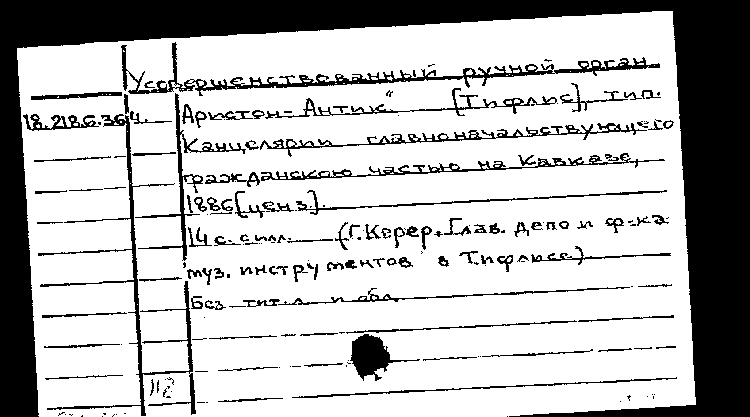 Усовершенствованный ручной орган
18.218.6.364. Аристон-Антик" [Тифлис], тип.
Канцелярии главноначальствующего
гражданскою частью на Кавказе,
1886[ценз].
14 с. илл. (Г.Керер. Глав. депо и ф-ка
муз. инструментов в Тифлисе)
Без тит.л. и обл.
112